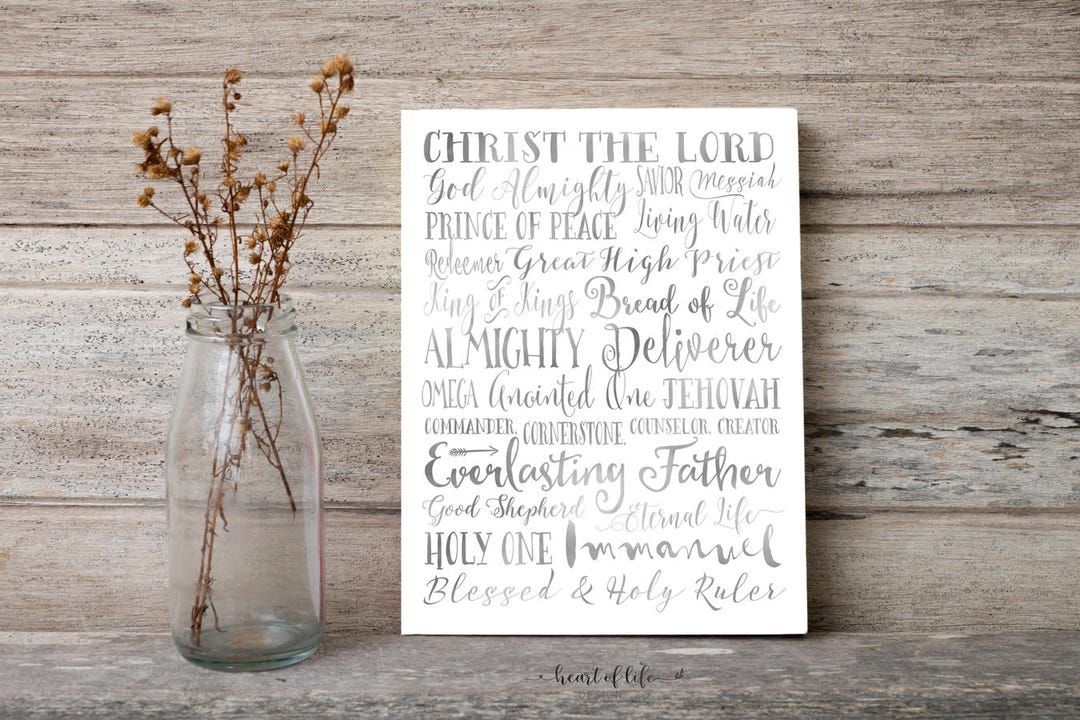 CHRIST THE LORD
God Almighty SAVIOR Messiah
PRINCE OF PEACE Living Water
Redeemer Great High Priest
King of Kings Bread of Life
ALMIGHTY Deliverer
OMEGA Anointed One JEHOVAH
COMMANDER, CORNERSTONE, COUNSELOR, CREATOR
Everlasting Father
Good Shepherd Eternal Life
HOLY ONE Immanuel
Blessed & Holy Ruler
heart of life
DESIGN